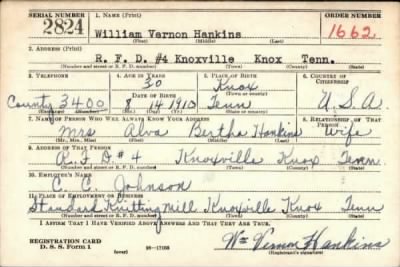 SERIAL NUMBER 1. NAME (Print) ORDER NUMBER
2824 William Vernon Hankins 1662
(First) (Middle) (Last)
2. ADDRESS (Print)
R. F. D. #4 Knoxville Knox Tenn.
(Number and street or R. F. D. number) (Town) (County) (State)
3. TELEPHONE 4. AGE IN YEARS 5. PLACE OF BIRTH 6. COUNTRY OF CITIZENSHIP
30 Knox
DATE OF BIRTH (Town or county)
County 3400 8 14 1910 Tenn U.S.A.
(Exchange) (Number) (Mo.) (Day) (Yr.) (State or country)
7. NAME OF PERSON WHO WILL ALWAYS KNOW YOUR ADDRESS 8. RELATIONSHIP OF THAT PERSON
Mrs Alva Bertha Hankins Wife
(Mr., Mrs., Miss) (First) (Middle) (Last)
9. ADDRESS OF THAT PERSON
R.F.D. #4 Knoxville Knox Tenn.
(Number and street or R. F. D. number) (Town) (County) (State)
10. EMPLOYER'S NAME
C. C. Johnson
11. PLACE OF EMPLOYMENT OR BUSINESS
Standard Knitting Mill Knoxville Knox Tenn
(Number and street or R. F. D. number) (Town) (County) (State)
I AFFIRM THAT I HAVE VERIFIED ABOVE ANSWERS AND THAT THEY ARE TRUE.
REGISTRATION CARD
D. S. S. Form 1 (over) 16—17105 Wm Vernon Hankins
(Registrant's signature)